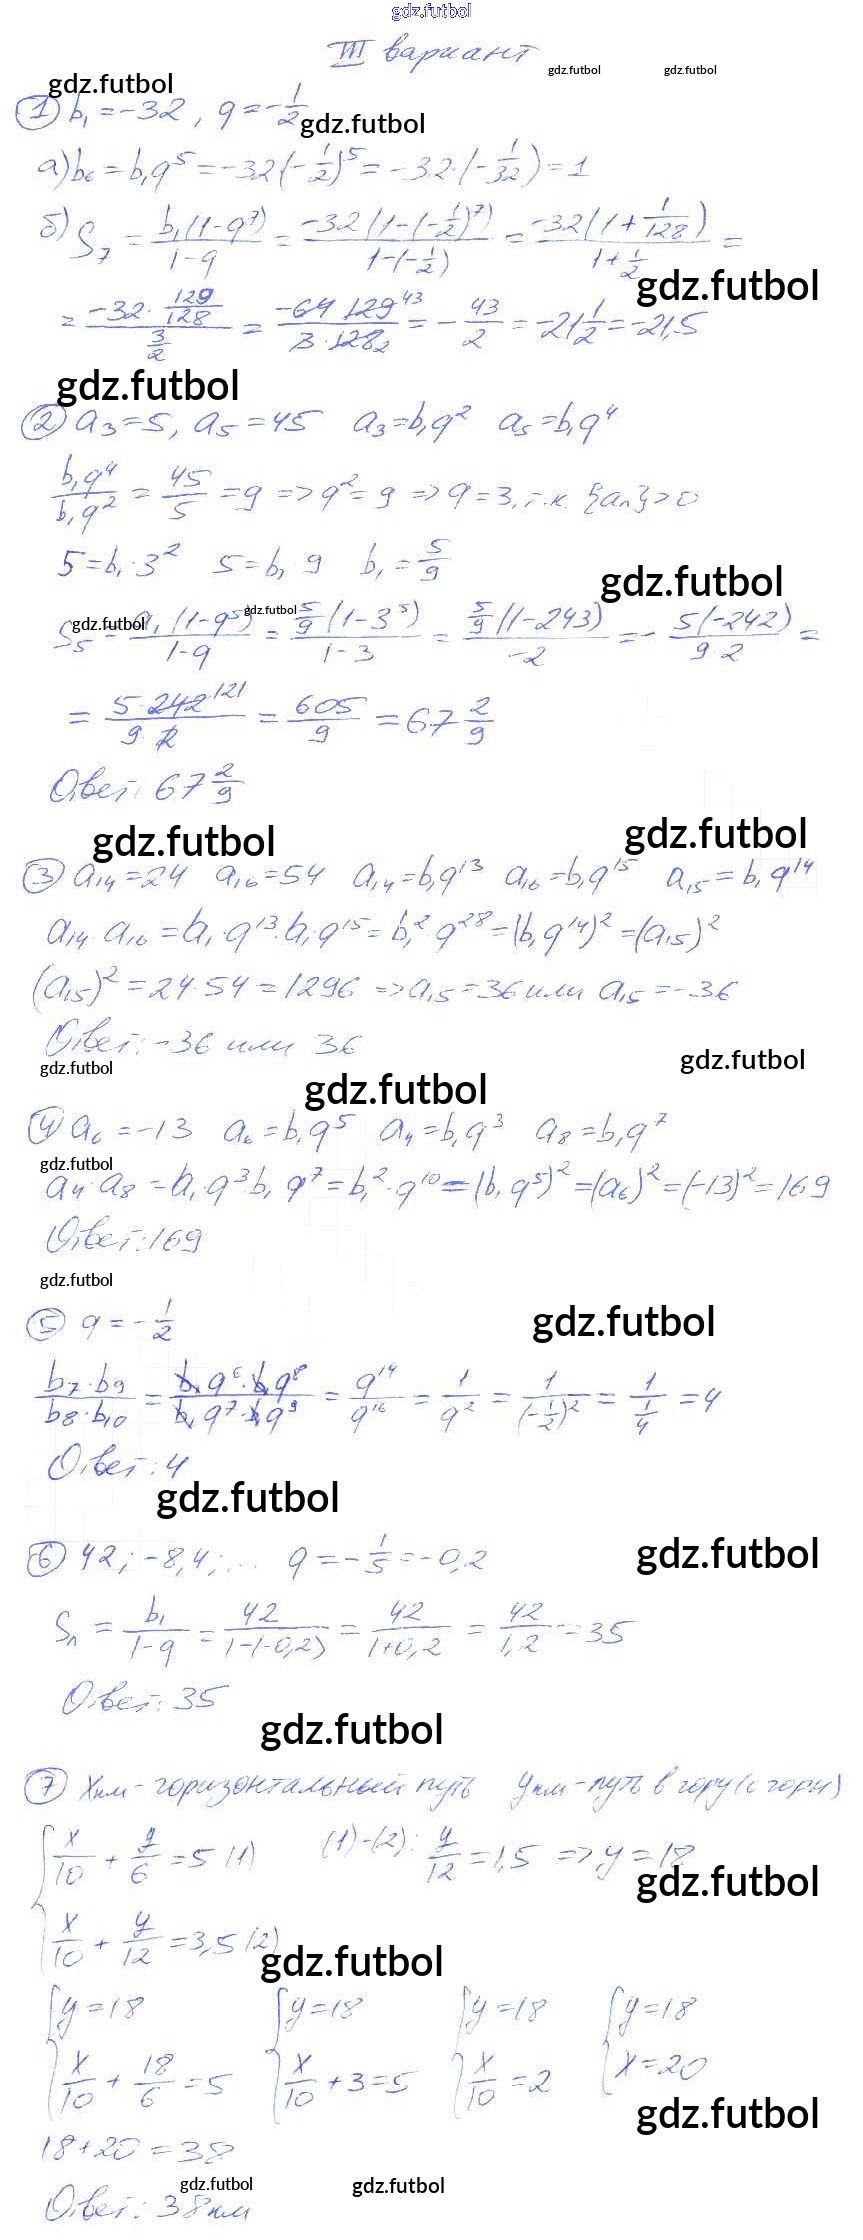 gdz.futbol
III вариант
gdz.futbol gdz.futbol
gdz.futbol
① b₁ = -32, q = -1/2
gdz.futbol
а) b₆ = b₁q⁵ = -32(-1/2)⁵ = -32·(-1/32) = 1
б) S₇ = b₁(1-q⁷)/(1-q) = -32(1-(-1/2)⁷)/(1-(-1/2)) = -32(1+1/128)/(1+1/2) =
gdz.futbol
= (-32·129/128)/(3/2) = (-64 129⁴³)/(3·128₂) = -43/2 = -21 1/2 = -21,5
gdz.futbol
② a₃ = 5, a₅ = 45 a₃ = b₁q² a₅ = b₁q⁴
b₁q⁴/b₁q² = 45/5 = 9 => q² = 9 => q = 3, т.к. {an} > 0
5 = b₁·3² 5 = b₁ 9 b₁ = 5/9
gdz.futbol
gdz.futbol gdz.futbol
S₅ = a₁(1-q⁵)/(1-q) = 5/9(1-3⁵)/(1-3) = 5/9(1-243)/-2 = - 5(-242)/(9·2) =
= 5·242¹²¹/(9·2) = 605/9 = 67 2/9
Ответ: 67 2/9
gdz.futbol gdz.futbol
③ a₁₄ = 24 a₁₆ = 54 a₁₄ = b₁q¹³ a₁₆ = b₁q¹⁵ a₁₅ = b₁q¹⁴
a₁₄·a₁₆ = a₁·q¹³·a₁·q¹⁵ = b₁²·q²⁸ = (b₁q¹⁴)² = (a₁₅)²
(a₁₅)² = 24·54 = 1296 => a₁₅ = 36 или a₁₅ = -36
Ответ: -36 или 36
gdz.futbol gdz.futbol
gdz.futbol
④ a₆ = -13 a₆ = b₁q⁵ a₄ = b₁q³ a₈ = b₁q⁷
gdz.futbol
a₄·a₈ = a₁·q³·b₁q⁷ = b₁²·q¹⁰ = (b₁q⁵)² = (a₆)² = (-13)² = 169
Ответ: 169
gdz.futbol
⑤ q = -1/2
gdz.futbol
b₇·b₉/b₈·b₁₀ = b₁q⁶·b₁q⁸/b₁q⁷·b₁q⁹ = q¹⁴/q¹⁶ = 1/q² = 1/(-1/2)² = 1/(1/4) = 4
Ответ: 4
gdz.futbol
⑥ 42; -8,4; ... q = -1/5 = -0,2
gdz.futbol
Sₙ = b₁/(1-q) = 42/(1-(-0,2)) = 42/(1+0,2) = 42/1,2 = 35
Ответ: 35
gdz.futbol
⑦ Xкм - горизонтальный путь Yкм - путь в гору (с горы)
x/10 + y/6 = 5 (1) (1)-(2): y/12 = 1,5 => y = 18
gdz.futbol
x/10 + y/12 = 3,5 (2)
gdz.futbol
{y = 18 {y = 18 {y = 18 {y = 18
x/10 + 18/6 = 5 x/10 + 3 = 5 x/10 = 2 x = 20
gdz.futbol
18+20 = 38
gdz.futbol gdz.futbol
Ответ: 38 км